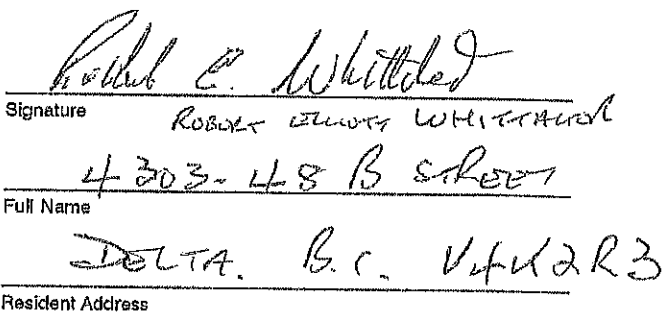 Robert E. Whittaker
Signature
ROBERT ELLIOTT WHITTAKER
4303-48 B STREET
Full Name
DELTA. B.C. V4K2R3
Resident Address